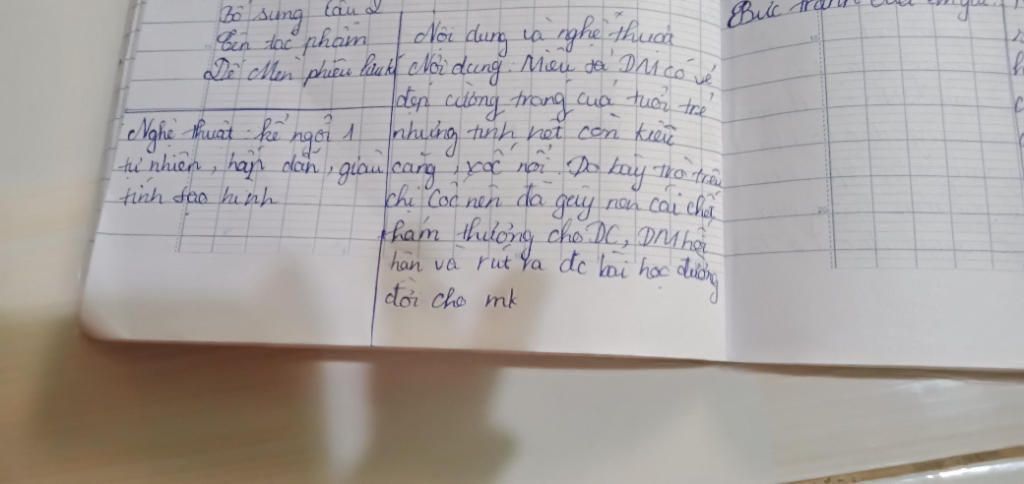 Bổ sung câu 2
Tên tác phẩm
Dế Mèn phiêu lưu kí
Nghệ thuật: kể ngôi 1
tự nhiên, hấp dẫn, giàu
tính tạo hình
Nội dung và nghệ thuật
Nội dung: Miêu tả DM có vẻ
đẹp cường tráng của tuổi trẻ
nhưng tính nết còn kiêu
căng, xốc nổi. Do bày trò trêu
chị Cốc nên đã gây nên cái chết
thảm thương cho DC, DM hối
hận và rút ra đc bài học đường
đời cho mk
Bức tranh của em gái